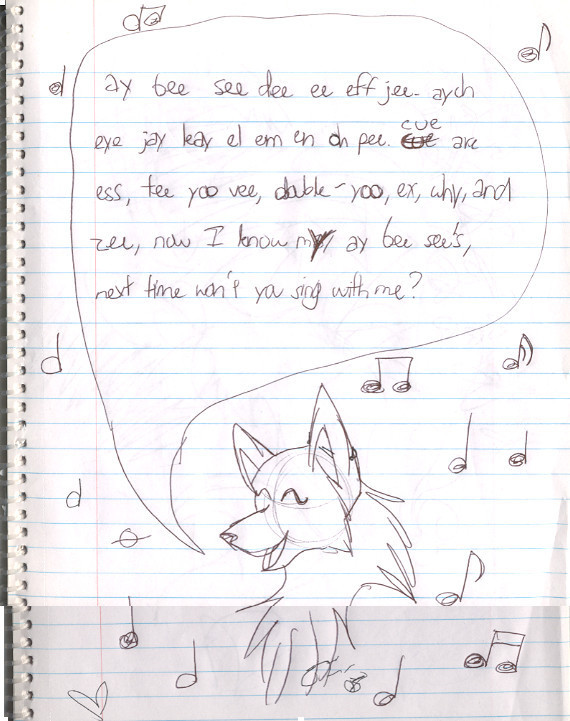 ay bee see dee ee eff jee- aych
eye jay kay el em en oh pee. cue are
ess, tee yoo vee, double-yoo, ex, why, and
zee, now I know my ay bee see's,
next time won't you sing with me?